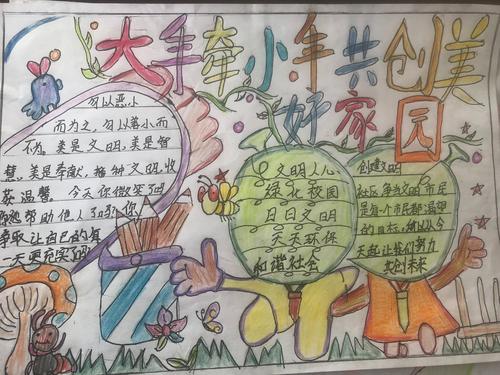 大手牵小手共创美
好家园
勿以恶小
而为之，勿以善小而
不为。美是文明，美是智
慧，美是奉献，播种文明，收
获温馨。今天你微笑了吗
帮助他人了吗
争取让自己的每
一天更充实
文明人儿
绿化校园
日日文明
天天环保
和谐社会
创建文明
社区争当文明市民
是每个市民都渴望
的目标，所以从今
天起让我们努力
共创未来